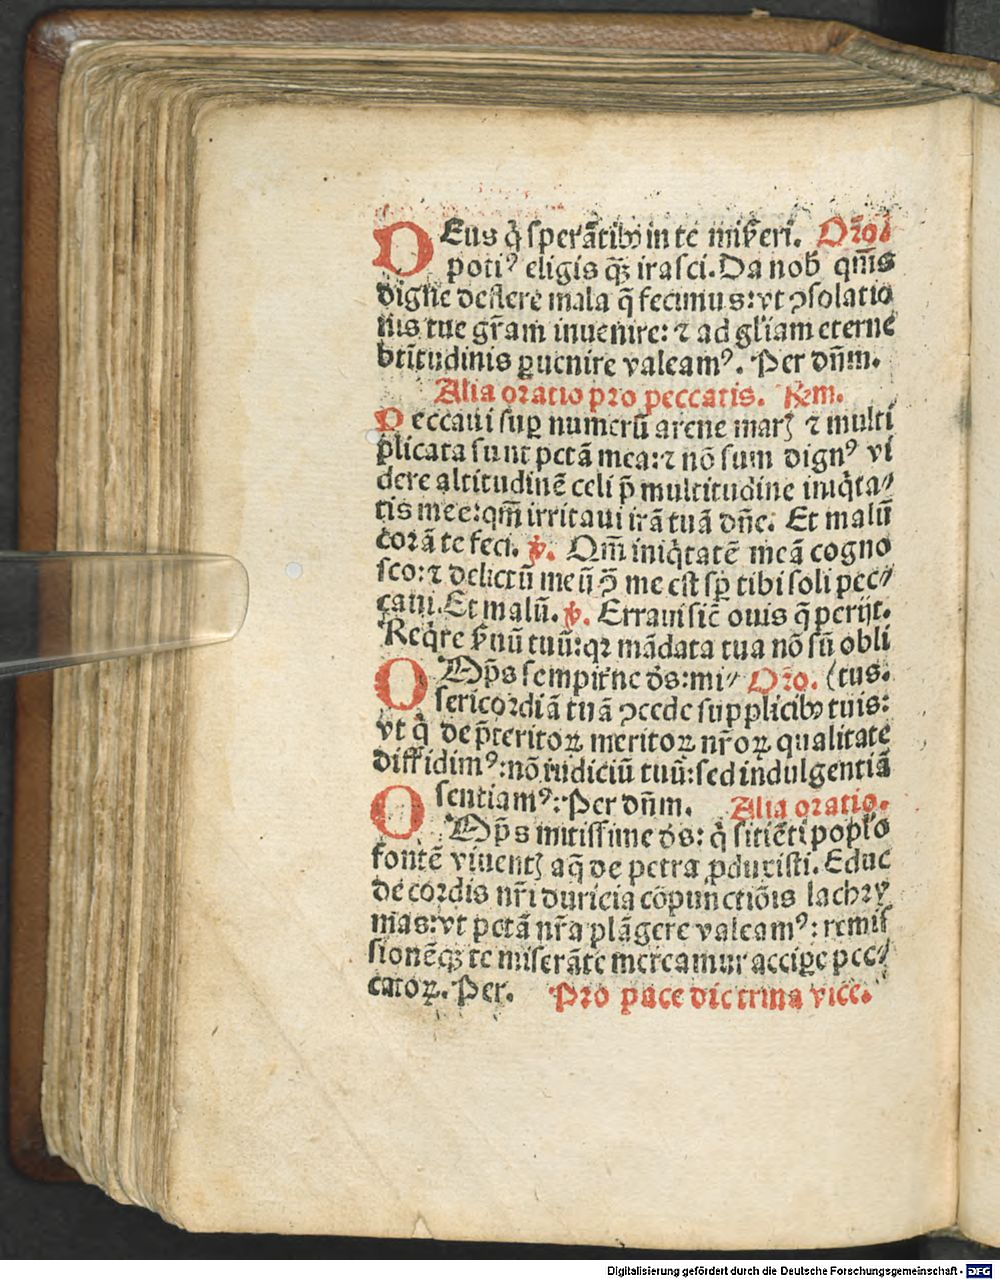 DEus q̇ sperãtibꝰ in te miẜeri. Oꝛo̅.
potiꝰ eligis qꝫ irasci. Da nob̅ qm̅s
digne deflere mala q̃ fecimus: vt ↄsolatio
nis tue gr̅am inuenire: ⁊ ad gl̅iam eterne
btĩtudinis ꝑuenire valeamꝰ. Per dn̅m.
Alia oꝛatio pꝛo peccatis. Rem.
Peccaui suꝑ numerũ arene marꝫ ⁊ multi
plicata sunt pctã mea: ⁊ nõ sum dignꝰ vi
dere altitudinẽ celi p̃ multitudine iniq̇ta⸗
tis mee: qm̅ irritaui irã tuã dn̅e. Et malũ
coꝛã te feci. ℣. Qm̅ iniq̇tatẽ meã cogno
sco: ⁊ delictũ meũ ↄ̃ me est sp̱ tibi soli pec⸗
caui. Et malũ. ℣. Erraui sic̅ ouis q̃ perijt.
Req̇re ẜuũ tuũ: qꝛ mãdata tua nõ sũ obli
OMp̅s sempiťne ds̅: mi⸗ Oꝛo̅. (tus.
sericoꝛdiã tuã ↄcede supplicibꝰ tuis:
vt q̇ de p̃teritoꝝ meritoꝝ nr̅oꝝ qualitate
diffidimꝰ: nõ iudiciũ tuũ: sed indulgentiã
sentiamꝰ: Per dn̅m. Alia oꝛatio.
OMp̅s mitissime ds̅: q̇ sitiẽti pop̱lo
fontẽ viuentꝫ aq̃ de petra ꝓduxisti. Educ
de coꝛdis nr̅i duricia cõpunctiõis lachꝛy
mas: vt pctã nr̅a plãgere valeamꝰ: remis
sionẽqꝫ te miserãte mereamur accipe pec⸗
catoꝝ. Per. Pꝛo pace dic trina vice.
Digitalisierung gefördert durch die Deutsche Forschungsgemeinschaft - DFG